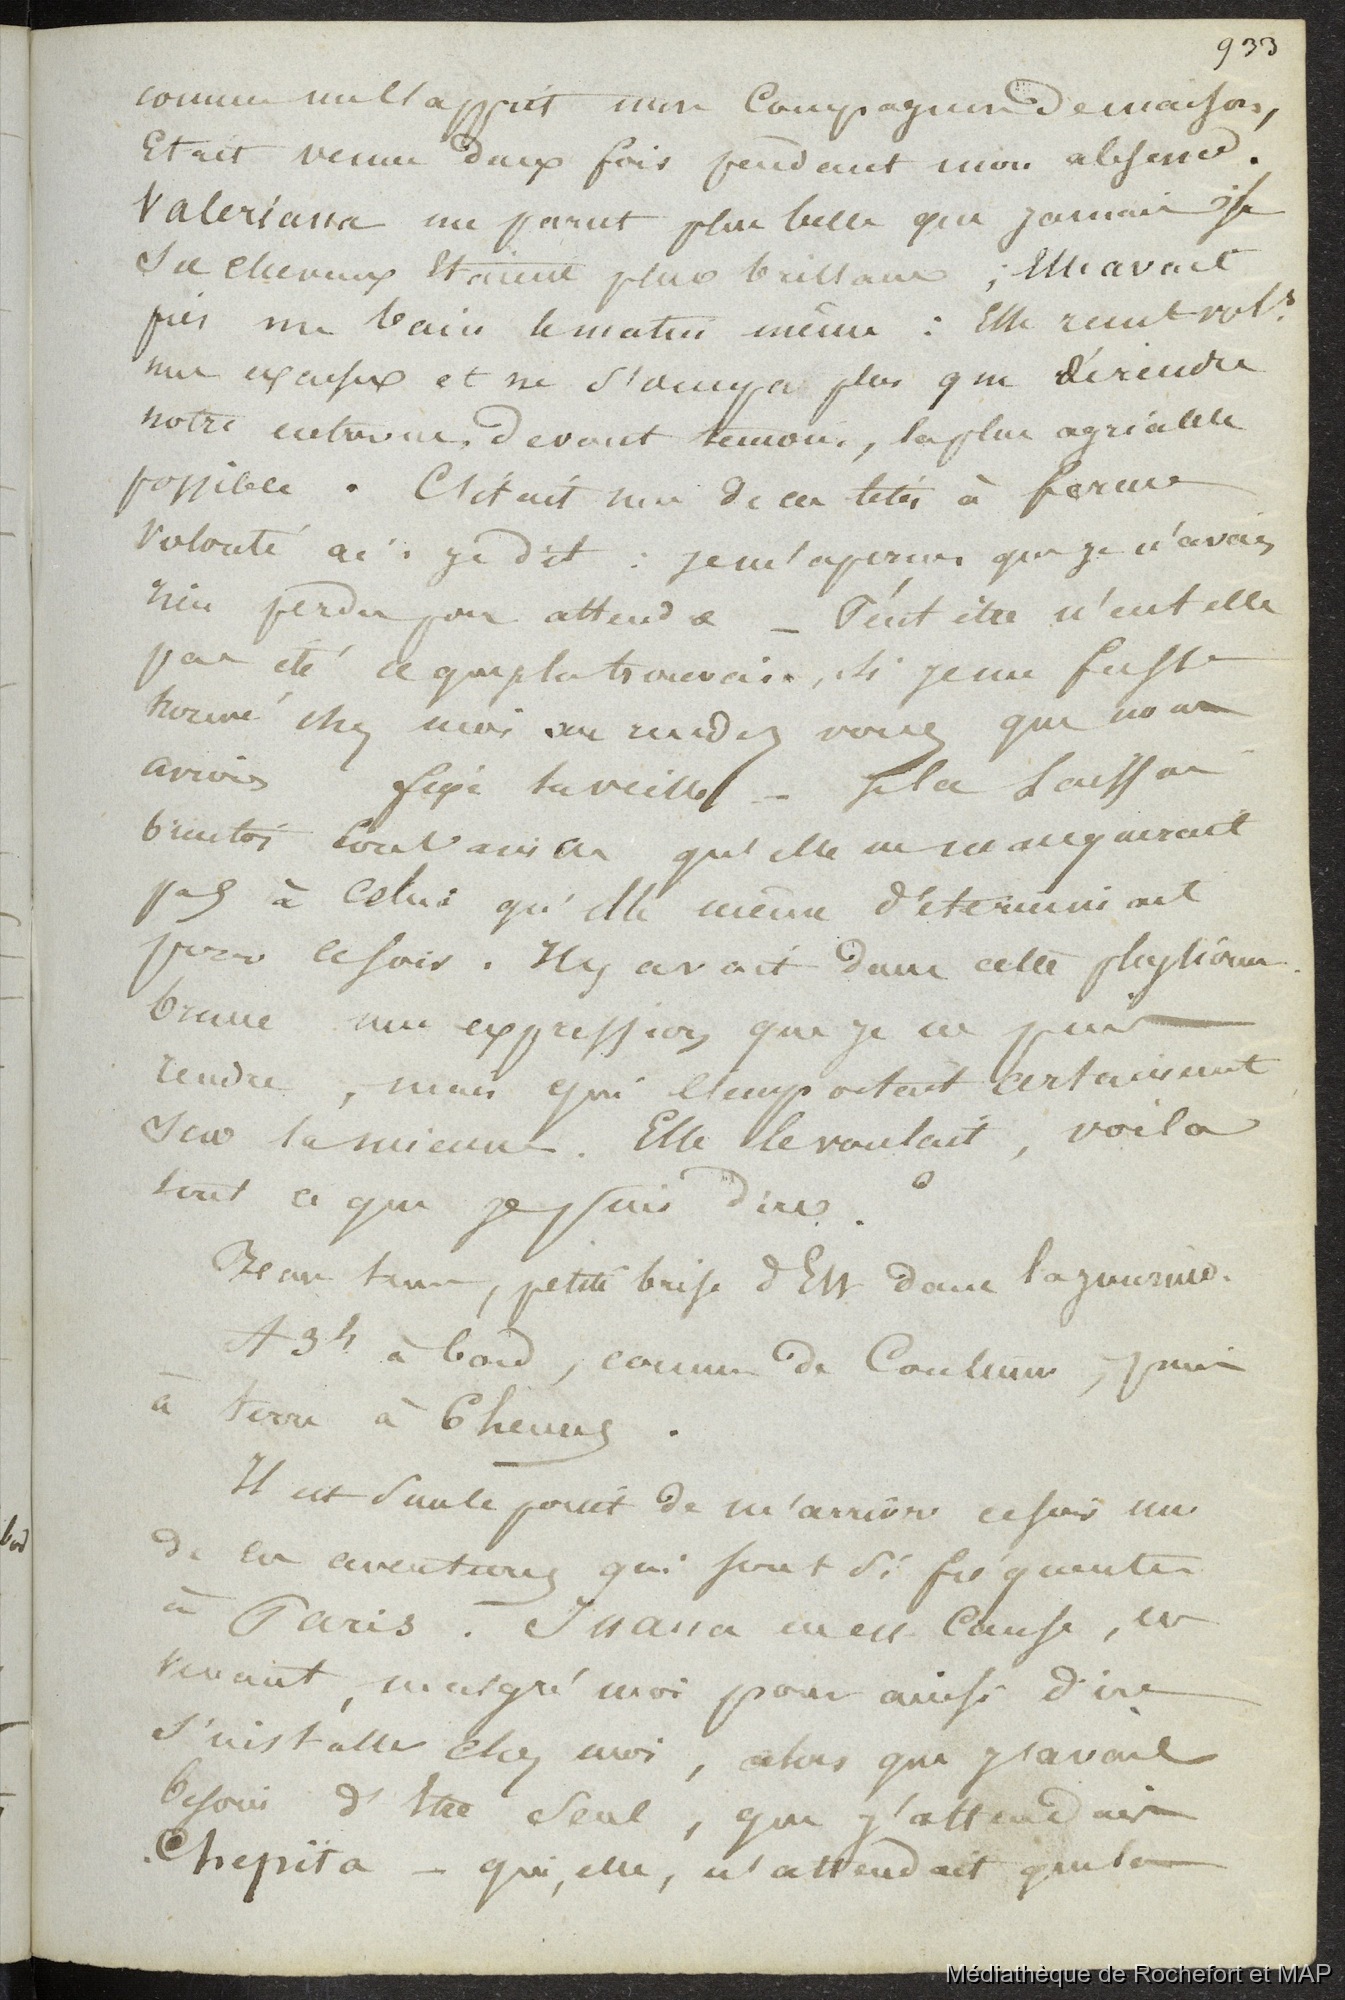 933
comme me l'apprit mon Compagnon de maison,
Etait venue deux fois pendant mon absence.
Valeriana me parut plus belle que jamais
Ses cheveux Etaient plus brillans ; Elle avait
pris un bain le matin même : Elle reçut
mes excuses et ne s'occupa plus que de rendre
notre entrevue, devant temoins, la plus agréable
possible . C'était une de ces têtes à ferme
volonté ai-je dit : je m'aperçus que je n'avais
rien perdu pour attendre _ Peut être n'eut elle
pas été ce que je la trouvais, si je me fusse
trouvé chez moi au rendez vous que nous
avions fixé la veille _ Je la laissai
bientôt convaincu qu'elle ne manquerait
pas à celui qu'elle même déterminait
pour ce soir . Il y avait dans cette physionomie
brune une expression que je ne puis
rendre , mais qui l'emportait certainement
sur la mienne . Elle le voulait , voila
tout ce que je puis dire .
Beau tems, petite brise d'Est dans la journée.
A 3h à bord , comme de Coutume , puis
à terre à 6 heures .
Il est sur le point de m'arriver ce soir une
de ces aventures qui sont si fréquentes
à Paris . Juana en est Cause , en
venant , malgré moi pour ainsi dire
s'installer chez moi , alors que j'avais
besoin d'Etre seul , que j'attendais
Chepita _ qui, elle, n'attendait que le
bord
Médiathèque de Rochefort et MAP